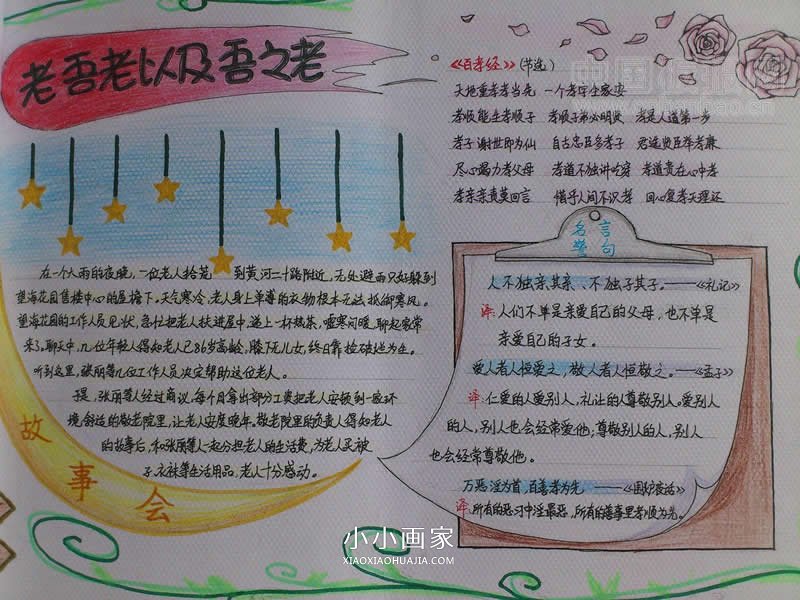 老吾老以及吾之老
《百孝经》(节选)
天地重孝孝当先 一个孝字全家安
孝顺能生孝顺子 孝顺子弟必明贤 孝是人道第一步
孝子谢世即为仙 自古忠臣多孝子 君选贤臣举孝廉
尽心竭力孝父母 孝道不独讲吃穿 孝道贵在心中孝
孝亲亲责莫回言 惜乎人间不识孝 回心复孝天理还
在一个雨的夜晚,一位老人拾荒到黄河二十路附近,无处避雨只好躲到
望海花园售楼中心的屋檐下,天气寒冷,老人身上单薄的衣物根本无法抵御寒风。
望海花园的工作人员见状,急忙把老人扶进屋中,递上一杯热茶,嘘寒问暖,聊起家常
来了。聊天中,几位年轻人得知老人已86岁高龄,膝下无儿女,终日靠捡破烂为生。
听到这里,张丽等几位工作人员决定帮助这位老人。
于是,张丽等人经过商议,每个月拿出部分工资把老人安顿到一处环
境舒适的敬老院里,让老人安度晚年。敬老院里的负责人得知老人
的故事后,和张丽等人一起分担老人的生活费,为老人买被
子、衣袜等生活用品,老人十分感动。
故
事
会
名言
警句
人不独亲其亲、不独子其子。——《礼记》
译:人们不单是亲爱自己的父母,也不单是
亲爱自己的子女。
爱人者人恒爱之,敬人者人恒敬之。——《孟子》
译:仁爱的人爱别人,礼让的人尊敬别人。爱别人
的人,别人也会经常爱他;尊敬别人的人,别人
也会经常尊敬他。
万恶淫为首,百善孝为先 ——《围炉夜话》
译:所有的恶习中淫最恶,所有的善事里孝顺为先。
小小画家
XIAOXIAOHUAJIA.COM